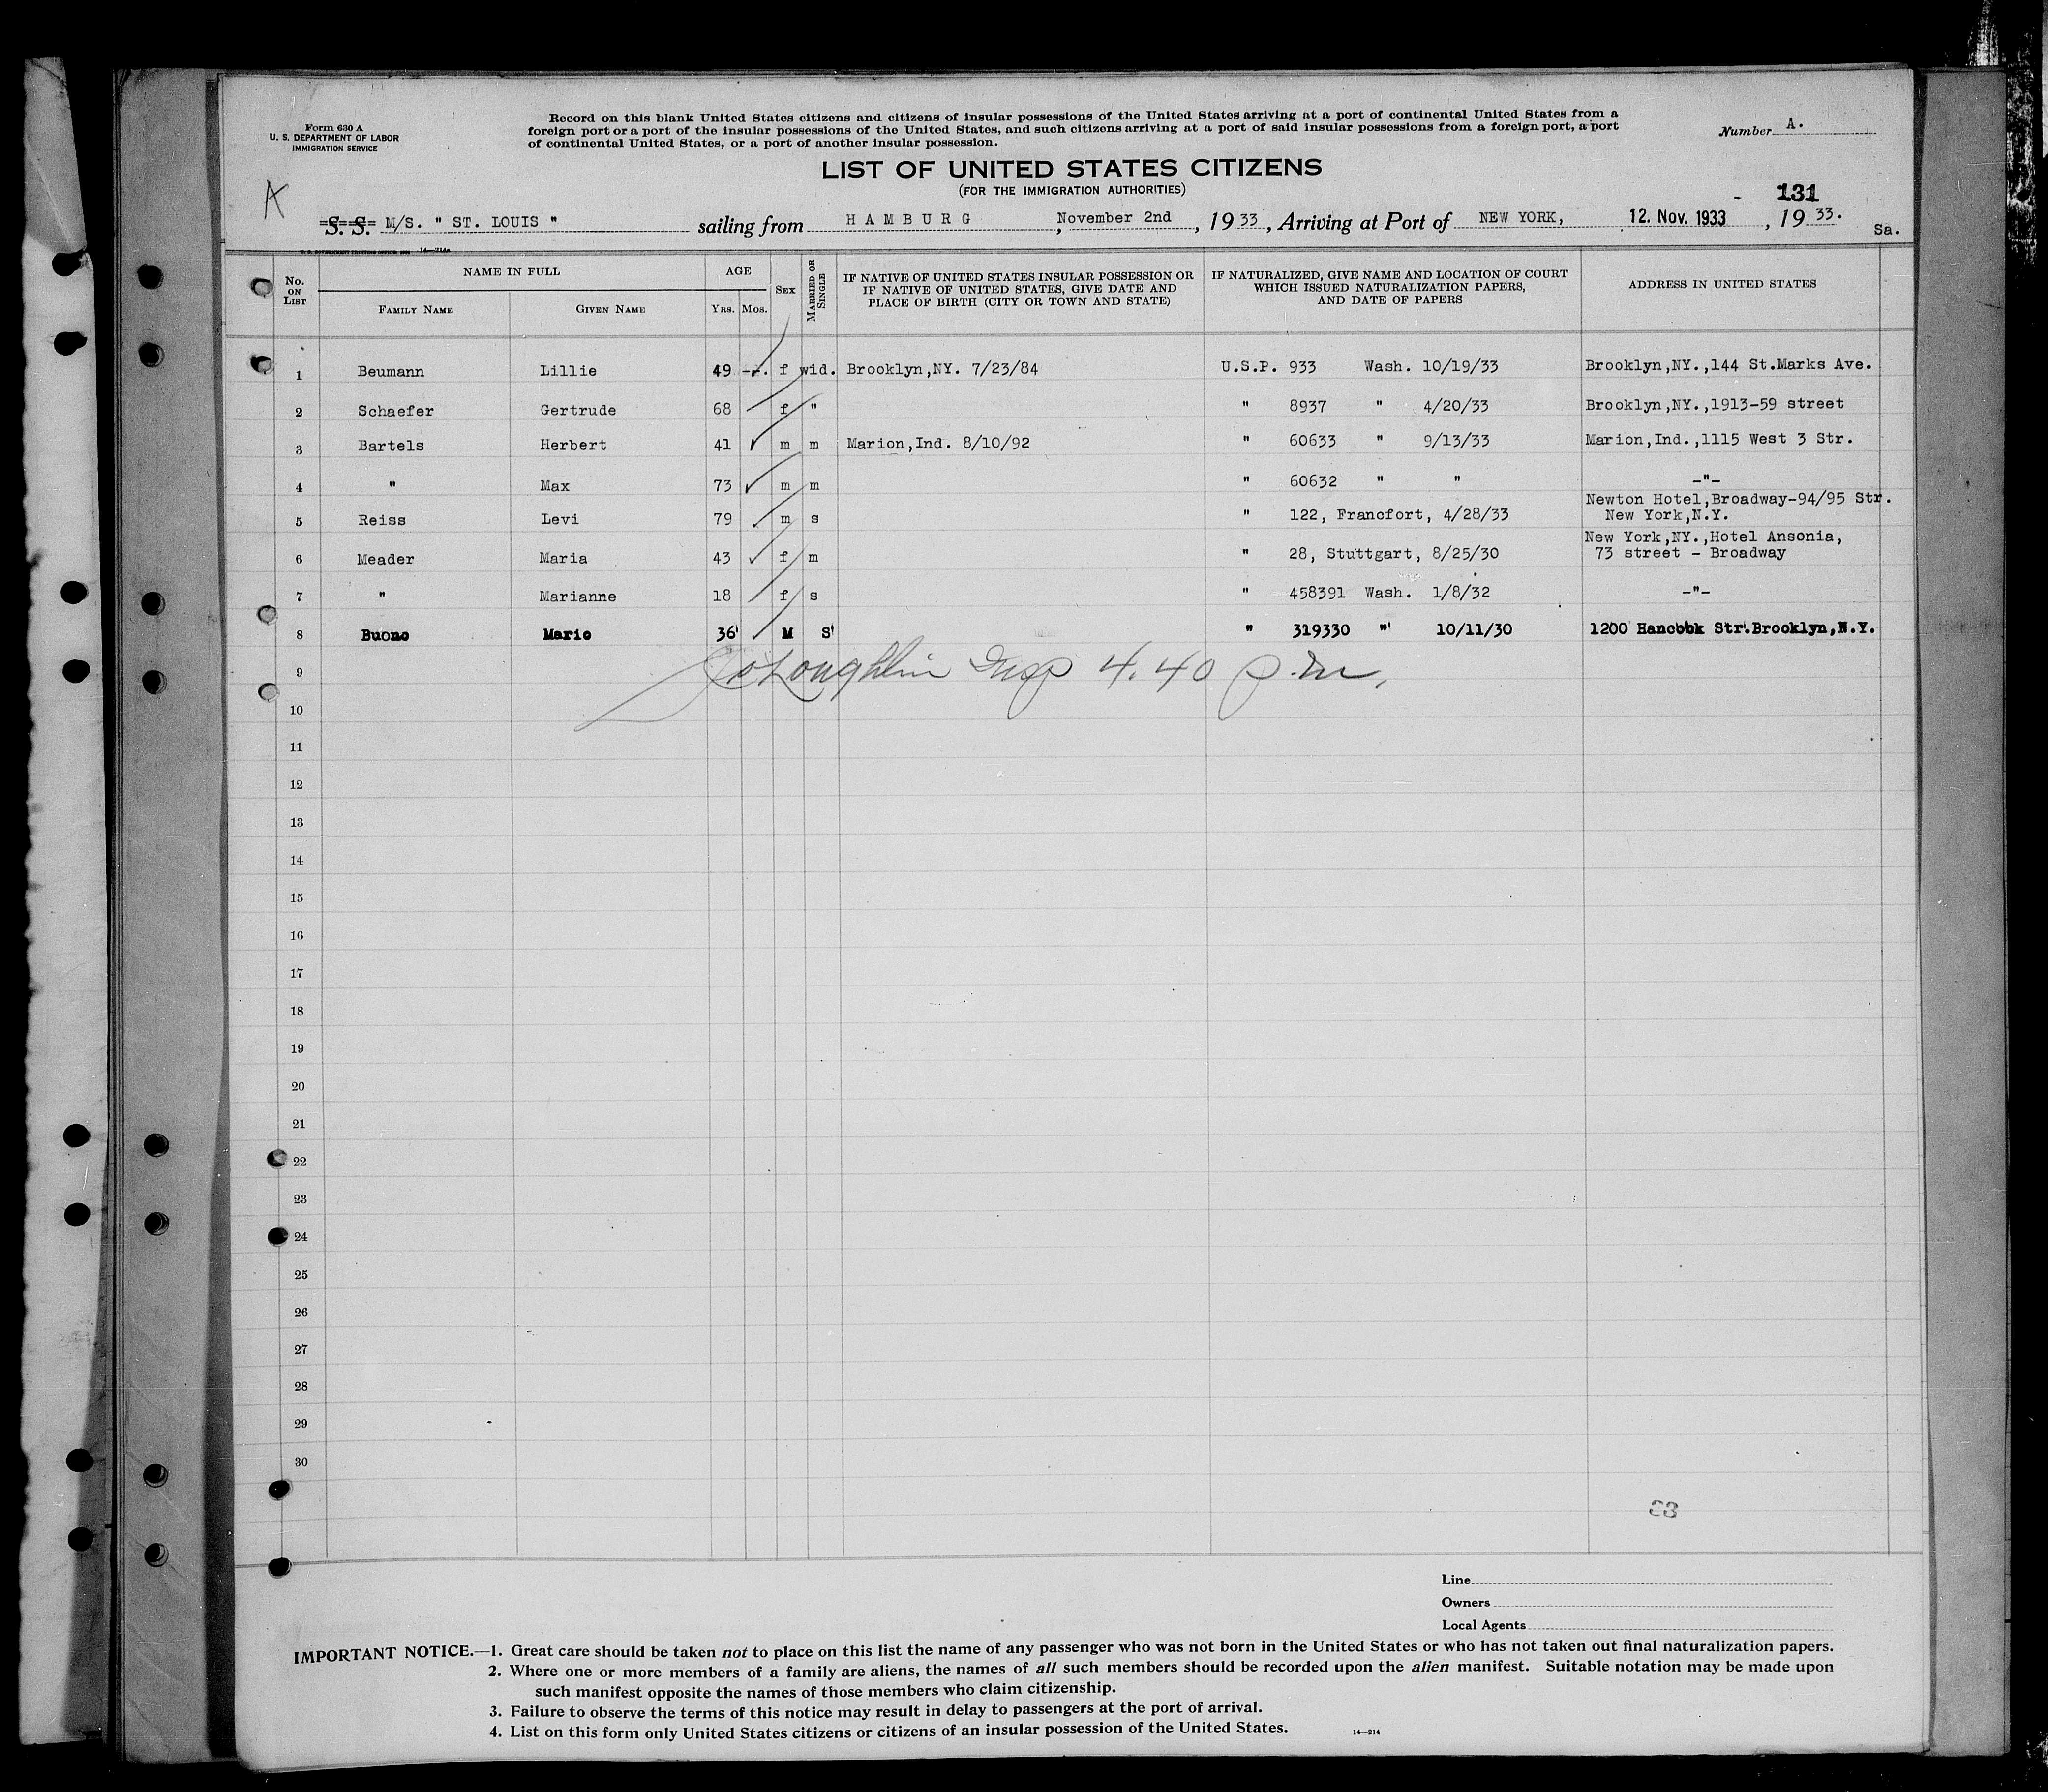 Form 630 A
U. S. DEPARTMENT OF LABOR
IMMIGRATION SERVICE
Record on this blank United States citizens and citizens of insular possessions of the United States arriving at a port of continental United States from a
foreign port or a port of the insular possessions of the United States, and such citizens arriving at a port of said insular possessions from a foreign port, a port
of continental United States, or a port of another insular possession.
Number A.
LIST OF UNITED STATES CITIZENS
(FOR THE IMMIGRATION AUTHORITIES)
A
131
S. S. M/S. " ST. LOUIS " sailing from HAMBURG, November 2nd, 1933, Arriving at Port of NEW YORK, 12. Nov. 1933, 1933.
Sa.
No. ON LIST NAME IN FULL FAMILY NAME GIVEN NAME AGE YRS. MOS. SEX MARRIED OR SINGLE IF NATIVE OF UNITED STATES INSULAR POSSESSION OR IF NATIVE OF UNITED STATES, GIVE DATE AND PLACE OF BIRTH (CITY OR TOWN AND STATE) IF NATURALIZED, GIVE NAME AND LOCATION OF COURT WHICH ISSUED NATURALIZATION PAPERS, AND DATE OF PAPERS ADDRESS IN UNITED STATES
1 Beumann Lillie 49 --. f wid. Brooklyn,NY. 7/23/84 U.S.P. 933 Wash. 10/19/33 Brooklyn,NY.,144 St.Marks Ave.
2 Schaefer Gertrude 68 f " " 8937 " 4/20/33 Brooklyn,NY.,1913-59 street
3 Bartels Herbert 41 m m Marion,Ind. 8/10/92 " 60633 " 9/13/33 Marion,Ind.,1115 West 3 Str.
4 " Max 73 m m " 60632 " " -"-
5 Reiss Levi 79 m s " 122, Francfort, 4/28/33 Newton Hotel,Broadway-94/95 Str.
New York,N.Y.
6 Meader Maria 43 f m " 28, Stuttgart, 8/25/30 New York,NY.,Hotel Ansonia,
73 street - Broadway
7 " Marianne 18 f s " 458391 Wash. 1/8/32 -"-
8 Buono Mario 36 M S " 319330 " 10/11/30 1200 Hancock Str.Brooklyn,N.Y.
9 McLoughlin Insp 4.40 p.m.
10
11
12
13
14
15
16
17
18
19
20
21
22
23
24
25
26
27
28
29
30
Line
Owners
Local Agents
IMPORTANT NOTICE.—1. Great care should be taken not to place on this list the name of any passenger who was not born in the United States or who has not taken out final naturalization papers.
2. Where one or more members of a family are aliens, the names of all such members should be recorded upon the alien manifest. Suitable notation may be made upon
such manifest opposite the names of those members who claim citizenship.
3. Failure to observe the terms of this notice may result in delay to passengers at the port of arrival.
4. List on this form only United States citizens or citizens of an insular possession of the United States.
14—214